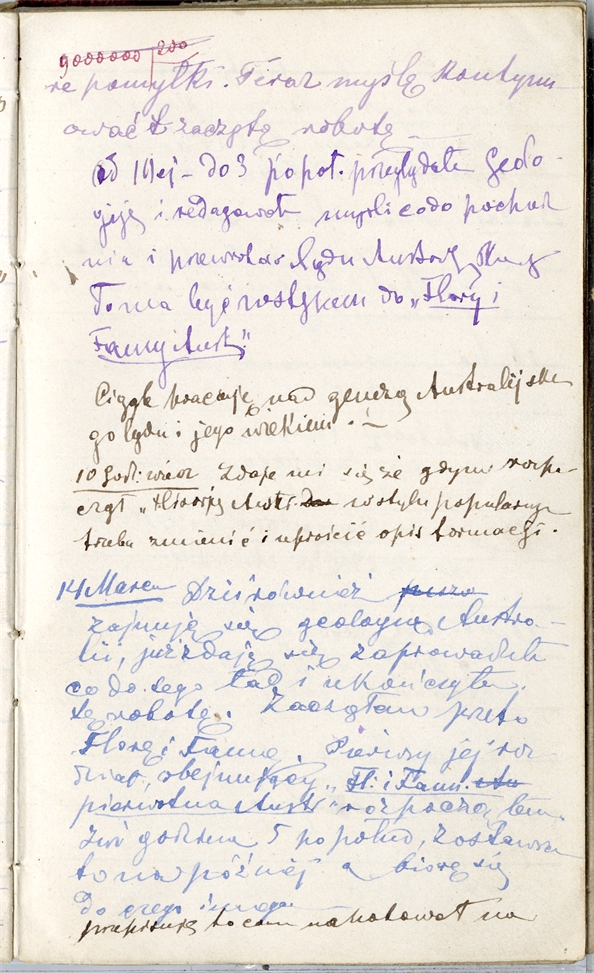 9000000 | 200
re pomyłki. Teraz myślę kontynu-
ować zaczętą robotę
od 10ej - do 3 popoł. przeglądałem Geolo-
giją i redagowałem myśli co do pochodze-
nia i lądu Austral.
To ma być wstępem do „Flory i
Fauny Austr."
Ciągle pracuję nad genezą Australijskie-
go lądu i jego wiekiem.
10 godz: wiecz Zdaje mi się że gdym rozpo-
czął „Historją Austr. w stylu popularnym
trzeba zmienić i uprościć opis formacji.
14 Marca Dziś również
zajmuję się geologią Austra-
lii, już zdaję się zaprowadziłem
co do tego ład i ukończyłem
tę robotę. Zacząłem przeto
Florę i Faunę. Pierwszy jej roz-
dział, obejmujący „Fl. i Faun.
pierwotna Austr" rozpocząłem.
Już godzina 5 popołud, zostawiam
to na później a biorę się
do czego innego
przepisuję to com nanotował na